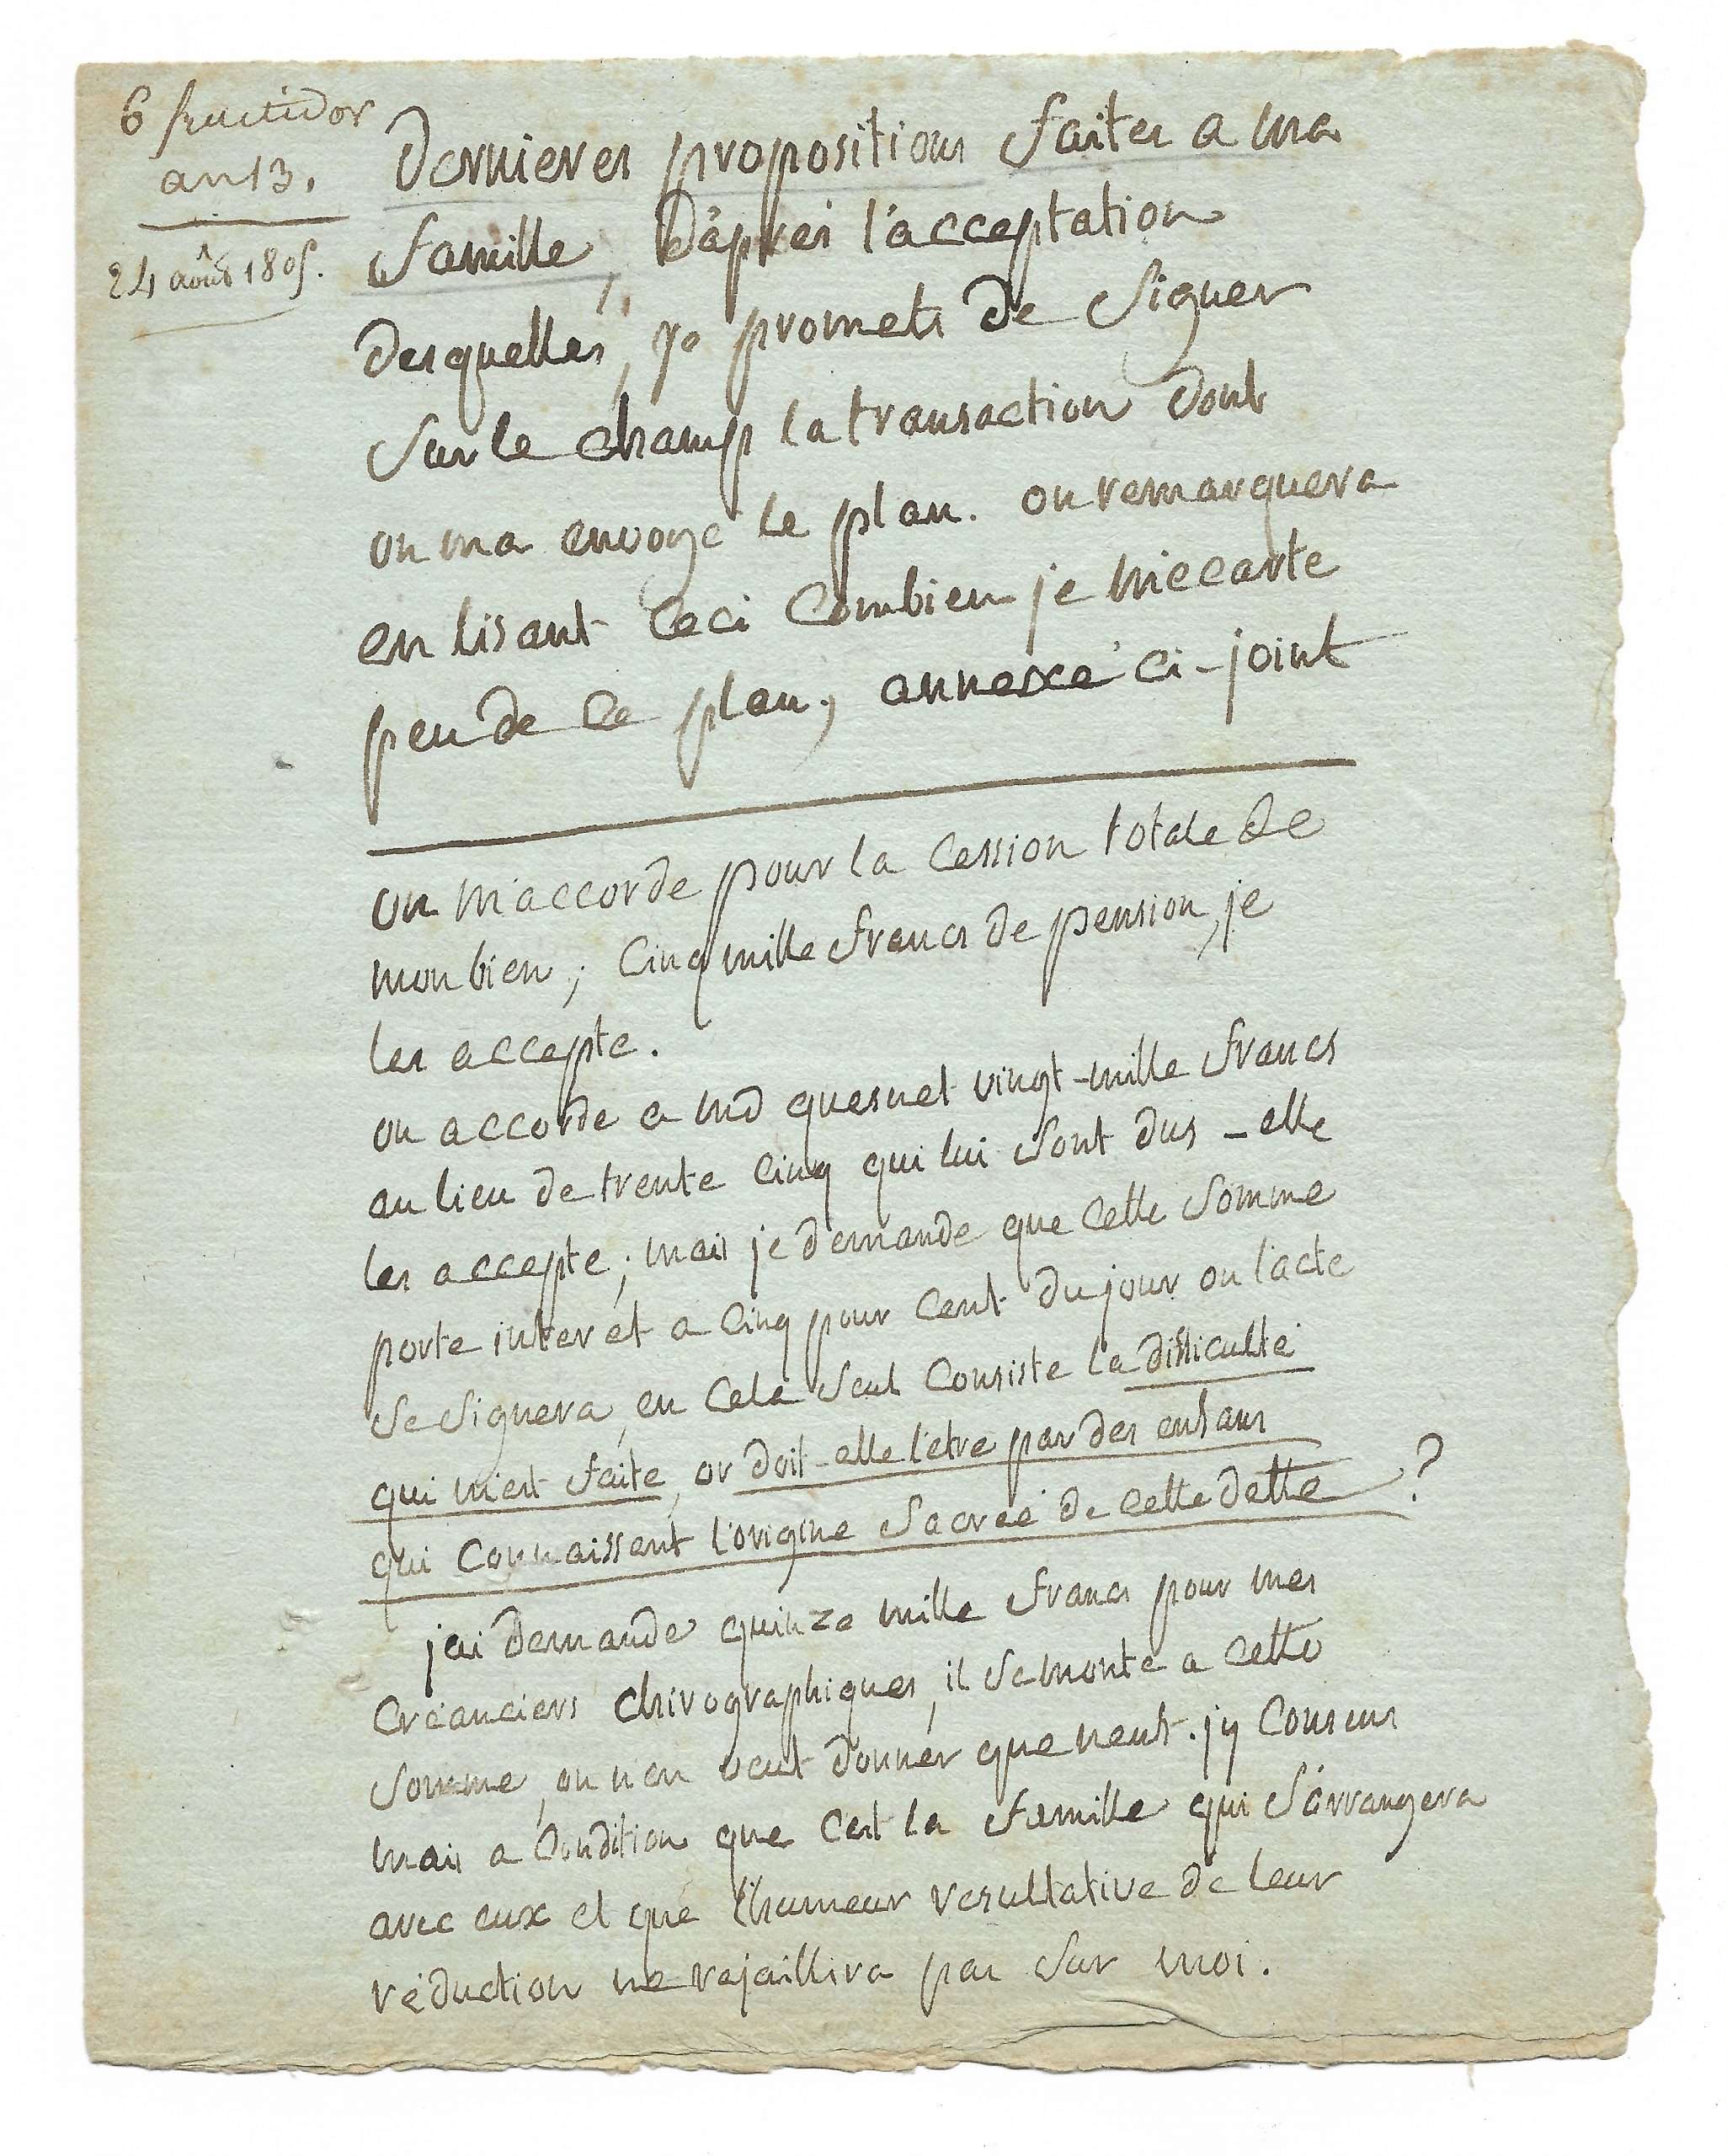 6 fructidor
an 13.
24 août 1805.
Dernieres propositions faites a ma
famille, d'aprés l'acceptation
desquelles, je promets de signer
sur le champ la transaction dont
on ma envoyé le plan. on remarquera
en lisant ceci combien je m'ecarte
peu de ce plan, annexé ci-joint
on m'accorde pour la cession totale de
mon bien; cinq mille francs de pension, je
les accepte.
on accorde a md quesnet vingt-mille francs
au lieu de trente cinq qui lui sont dus - elle
les accepte; mais je demande que cette somme
porte interét a cinq pour cent du jour ou l'acte
se signera, en cela seul consiste la difficulté
qui m'est faite, or doit-elle l'etre par des enfans
qui connaissent l'origine sacreé de cette dette ?
jai demandé quinze mille francs pour mes
créanciers chirographiques, il se monte a cette
somme, on n'en veut donner que neuf. j'y consens
mais a condition que c'est la famille qui s'arrangera
avec eux et que l'humeur resultative de leur
réduction ne rejaillira pas sur moi.